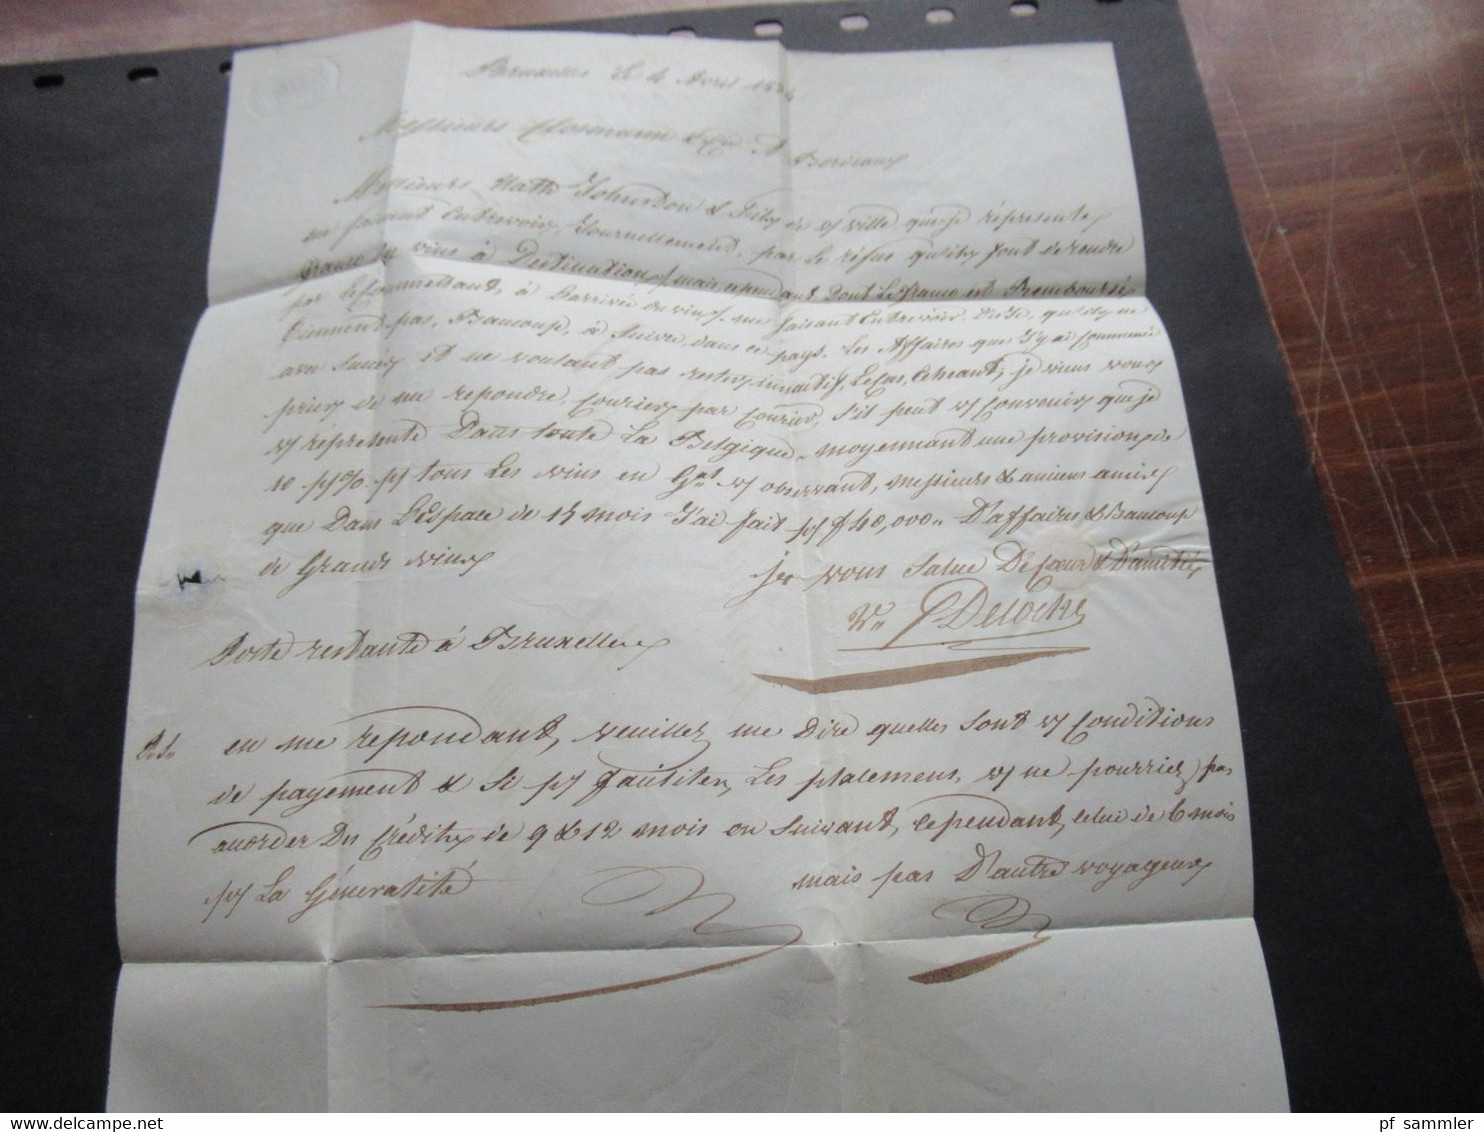 Bruxelles le 4 Avril
Messieurs & Cie à Bordeaux
Messieurs Nath Johnston & fils de vs ville que je réprésente
me faisant Entrevoir Journellement, par le réfus qu'ils font de rendre
franco les vins à Destination, mais cependant Dont le franco est Remboursé
par le Commettant, à L'arrivée du vin, me faisant Entrevoir qu'ils ne
tiennent pas, Beaucoup, à suivre dans ce pays. Les Affaires que J'y ai Commencé
avec succès et ne voulant pas rester innactif, Le Cas, Echeant, je viens vous
prier de me repondre, Courier par Courier, s'il peut vs Convenir que je
vs réprésente Dans toute La Belgique, moyennant une provision de
10 p% pr tous Les vins en Gal vs observant, Messieurs & anciens amis
que Dans L'Espace de 15 mois J'ai fait pr f 40,000 D'affaires & Beaucoup
de Grands vins
je vous Salue De Coeur & D'amitié
Deloche
Poste restante à Bruxelles
P.S. en me repondant, veuillez me Dire quelles Sont vs Conditions
de payement & Si pr faciliter, Les placemens, vs ne pourriez pas
accorder Des Crédits de 9 & 12 mois en Suivant, cependant, celui de 6 mois
pr La Généralité
mais pas D'autre voyageurs
pf_sammler